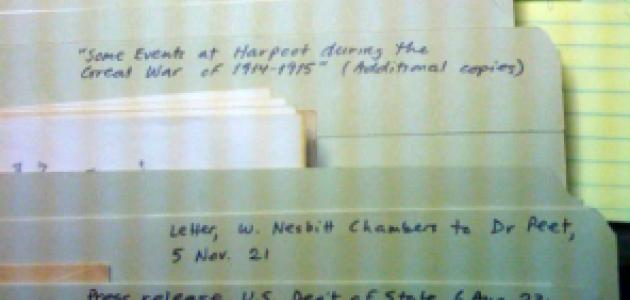 "Some Events at Harpoot during the
Great War of 1914-1915" (Additional copies)
Letter, W. Nesbitt Chambers to Dr Peet,
5 Nov. 21
Press release U.S. Dep't of State